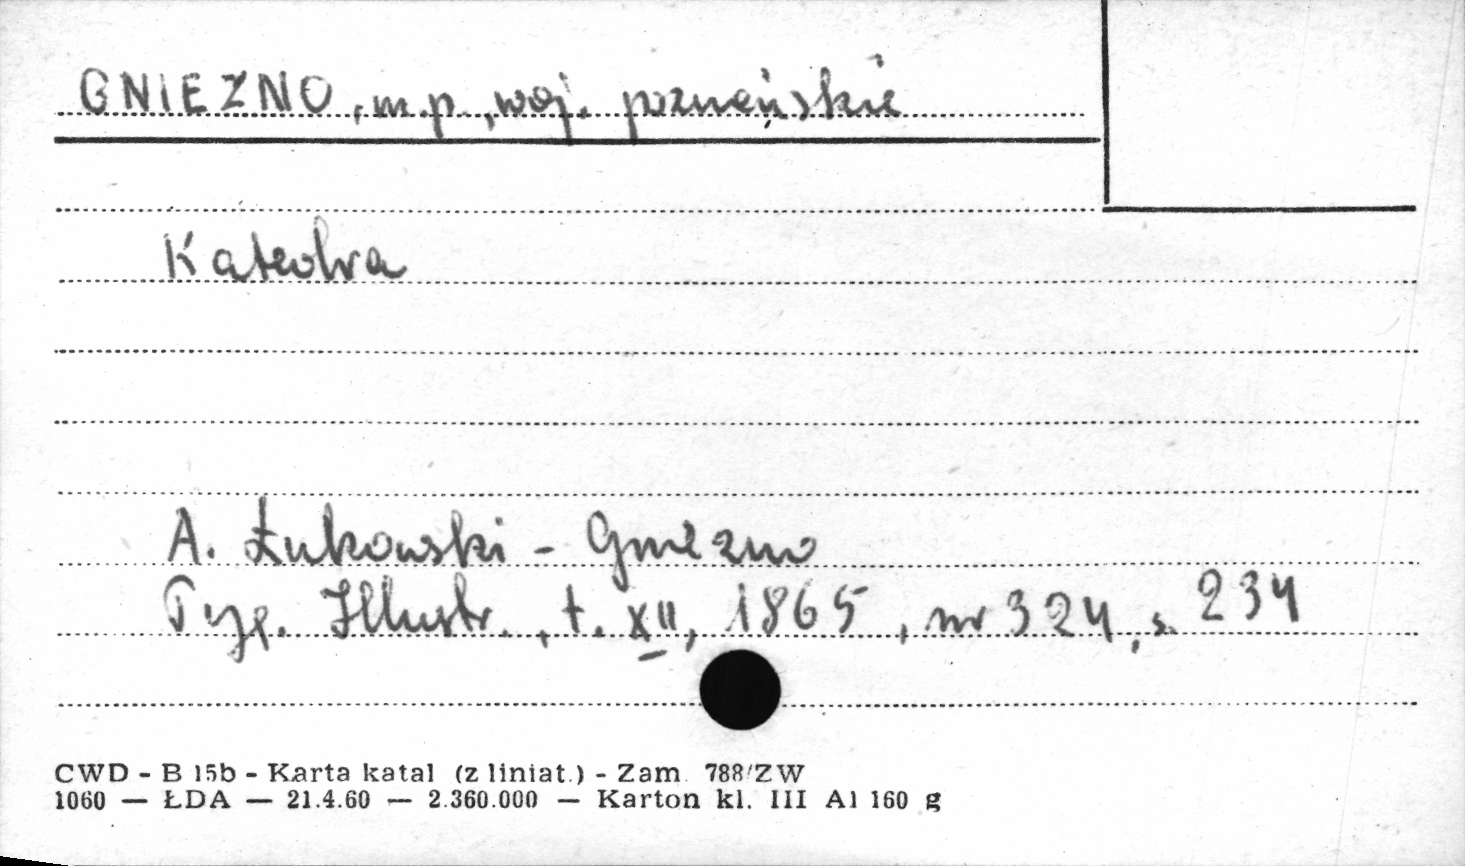 GNIEZNO, m.p., woj. poznańskie
Katedra
A. Łukowski - Gniezno
Tyg. Illustr., t. XII, 1865, nr 324, s. 234
CWD - B 15b - Karta katal (z liniat.) - Zam. 788/ZW
1060 — ŁDA — 21.4.60 — 2.360.000 — Karton kl. III A1 160 g